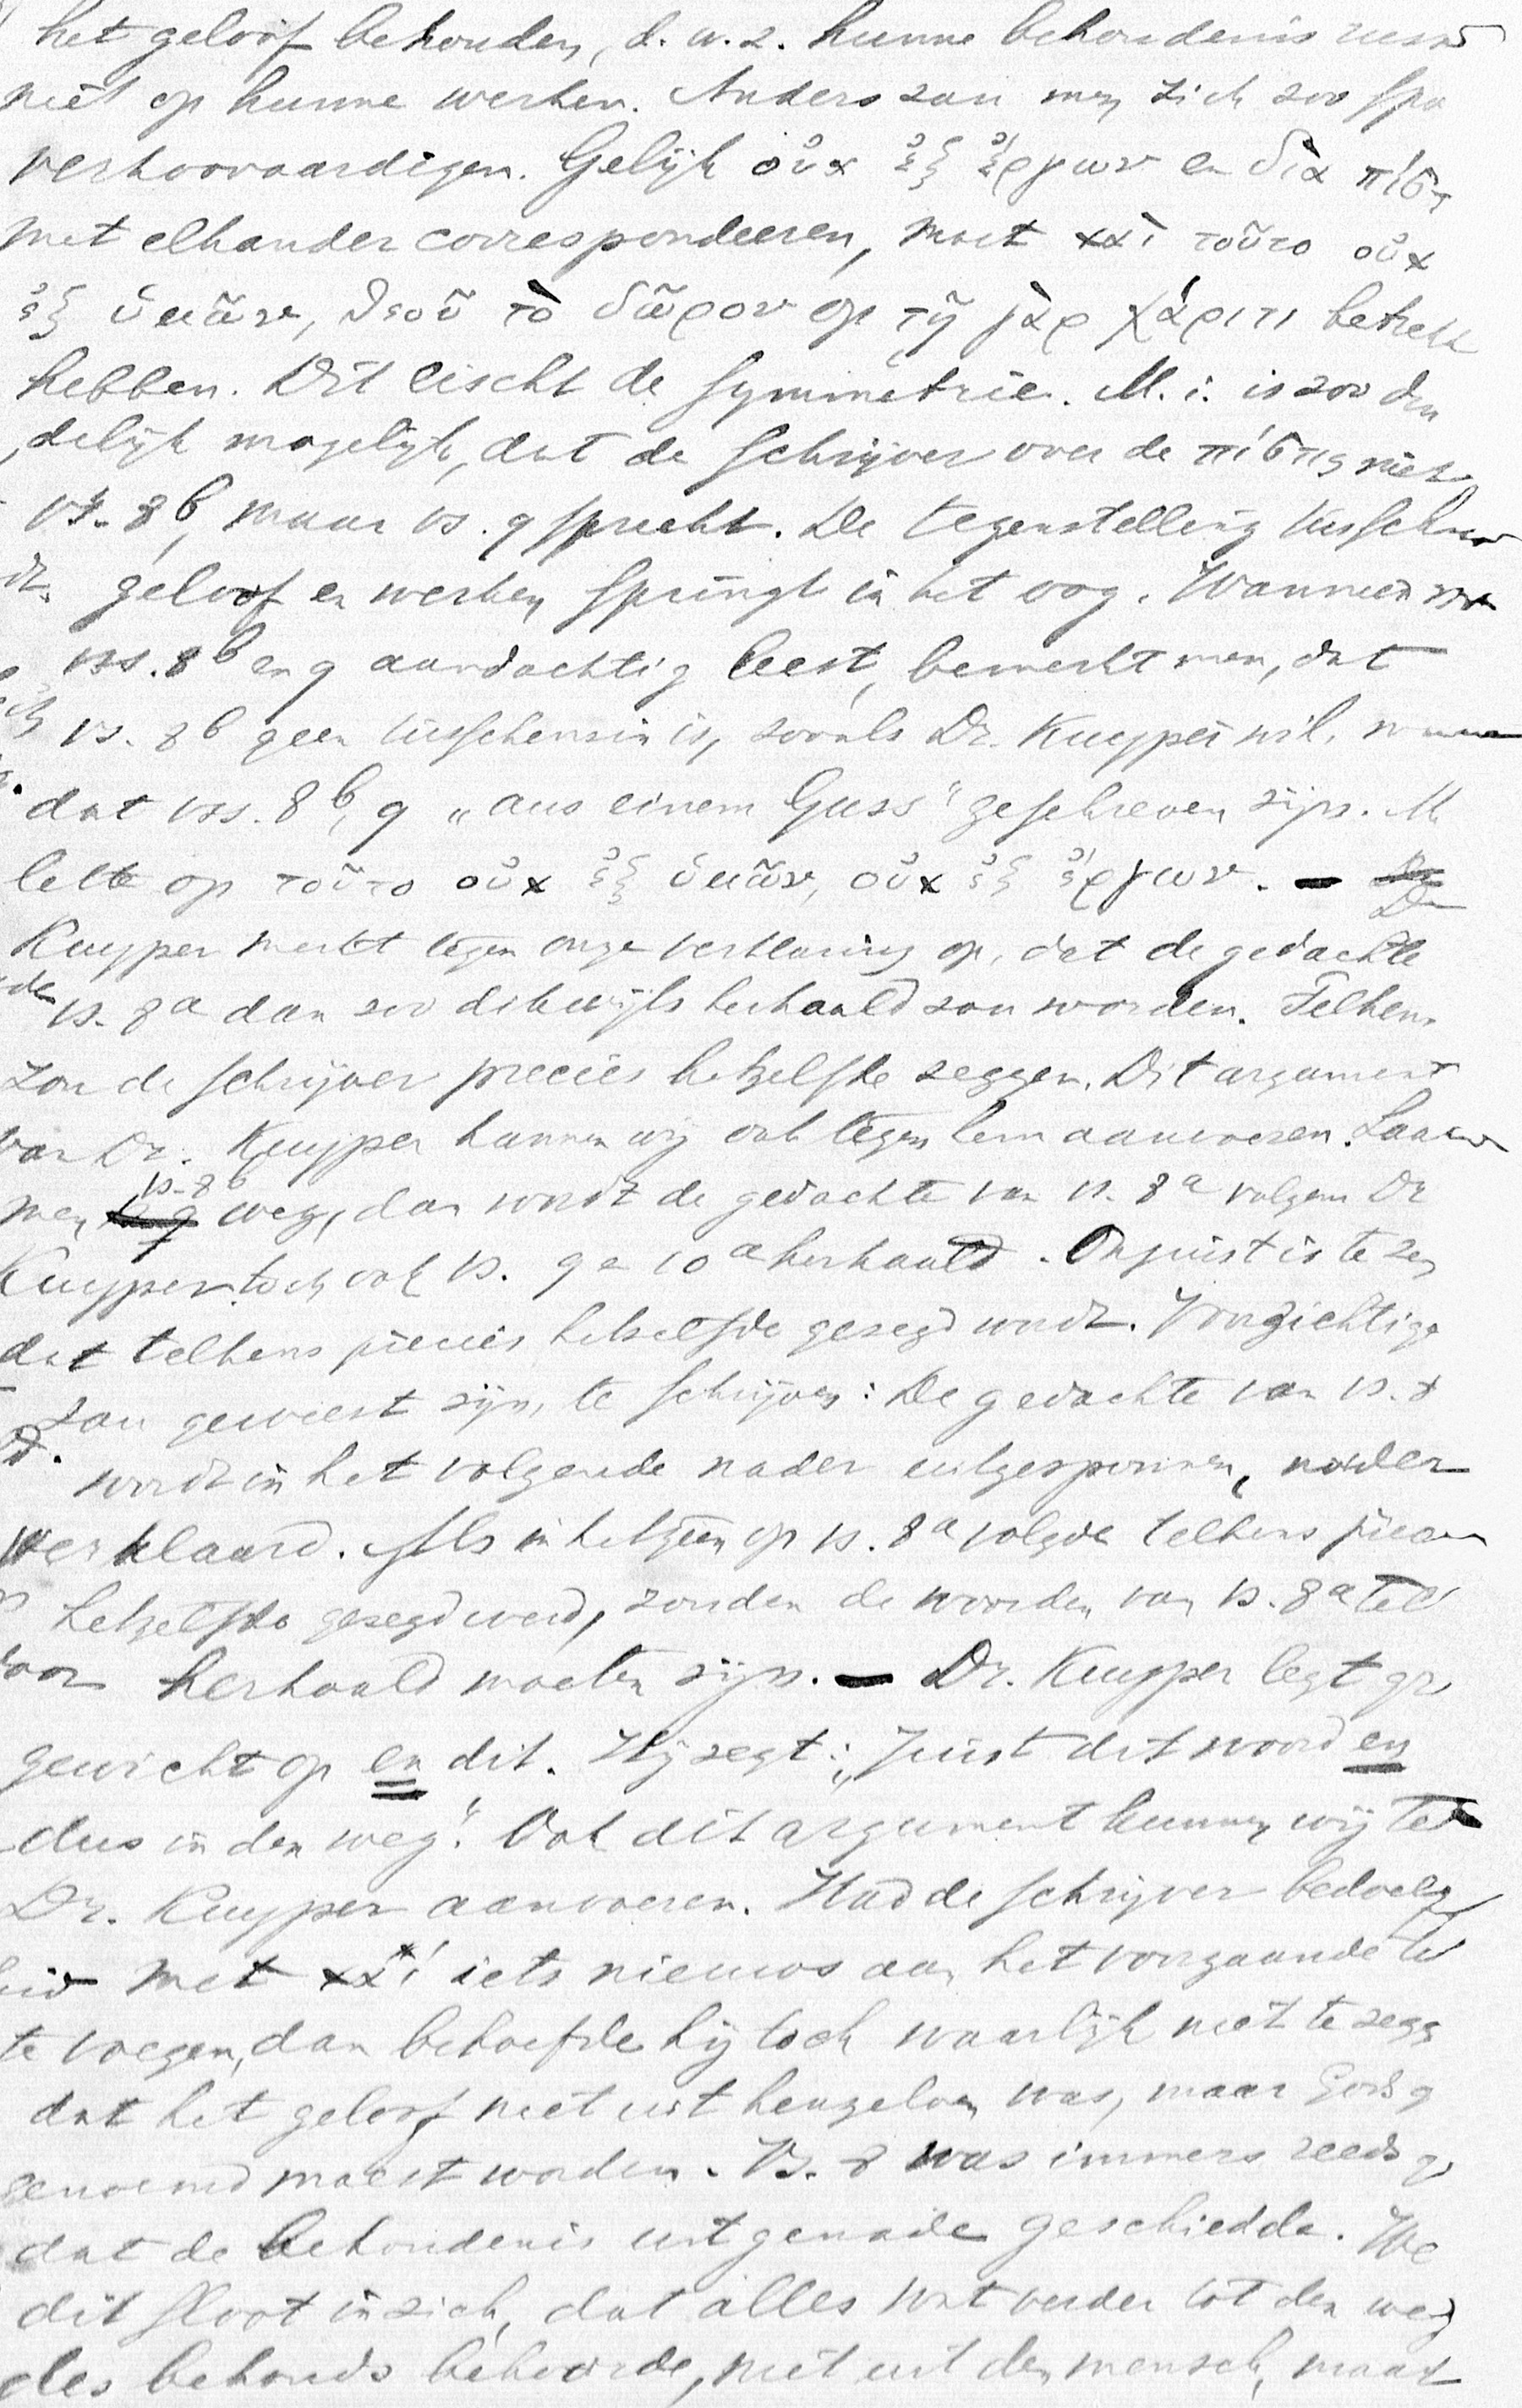 het geloof behouden, d. w. z. hunne behoudenis rust
niet op hunne werken. Anders zou men zich zoo spo
verhoovaardigen. Gelijk οὐκ ἐξ ἔργων en διὰ πίστ
met elkander correspondeeren, moet καὶ τοῦτο οὐκ
ἐξ ὑμῶν, θεοῦ τὸ δῶρον op τῇ γὰρ χάριτι betrekk
hebben. Dit eischt de symmetrie. M. i. is zoo dui
delijk mogelijk, dat de schrijver over de πίστις niet
vs. 8b, maar vs. 9 spreekt. De tegenstelling tusschen
geloof en werken springt in het oog. Wanneer men
vss. 8b en 9 aandachtig leest, bemerkt men, dat
vs. 8b geen tusschenzin is, zooals Dr. Kuyper wil, maar
dat vss. 8b, 9 „aus einem Guss" geschreven zijn. M
lette op τοῦτο οὐκ ἐξ ὑμῶν, οὐκ ἐξ ἔργων. — Dr
Kuyper merkt tegen onze verklaring op, dat de gedachte
vs. 8a dan zoo dikwijls herhaald zou worden. Telkens
zou de schrijver precies hetzelfde zeggen. Dit argument
van Dr. Kuyper kunnen wij ook tegen hem aanvoeren. Laat
men vs. 8b weg, dan wordt de gedachte van vs. 8a volgens Dr
Kuyper toch ook vs. 9 en 10a herhaald. Onjuist is te zeg
dat telkens precies hetzelfde gezegd wordt. Voorzichtiger
zou geweest zijn, te schrijven: De gedachte van vs. 8
wordt in het volgende nader uitgesponnen, nader
verklaard. Als in hetgeen op vs. 8a volgde telkens precies
hetzelfde gezegd werd, zouden de woorden van vs. 8a tel
herhaald moeten zijn. — Dr. Kuyper legt gr
gewicht op en dit. Hij zegt: „Juist dit woord en
dus in den weg". Ook dit argument kunnen wij te
Dr. Kuyper aanvoeren. Had de schrijver bedoeld
met καί iets nieuws aan het voorgaande te
te voegen, dan behoefde hij toch waarlijk niet te zegg
dat het geloof niet uit henzelven was, maar Gods g
genoemd moest worden. Vs. 8 was immers reeds g
dat de behoudenis uit genade geschiedde. We
dit sloot in zich, dat alles wat verder tot den weg
des behouds behoorde, niet uit den mensch, maar